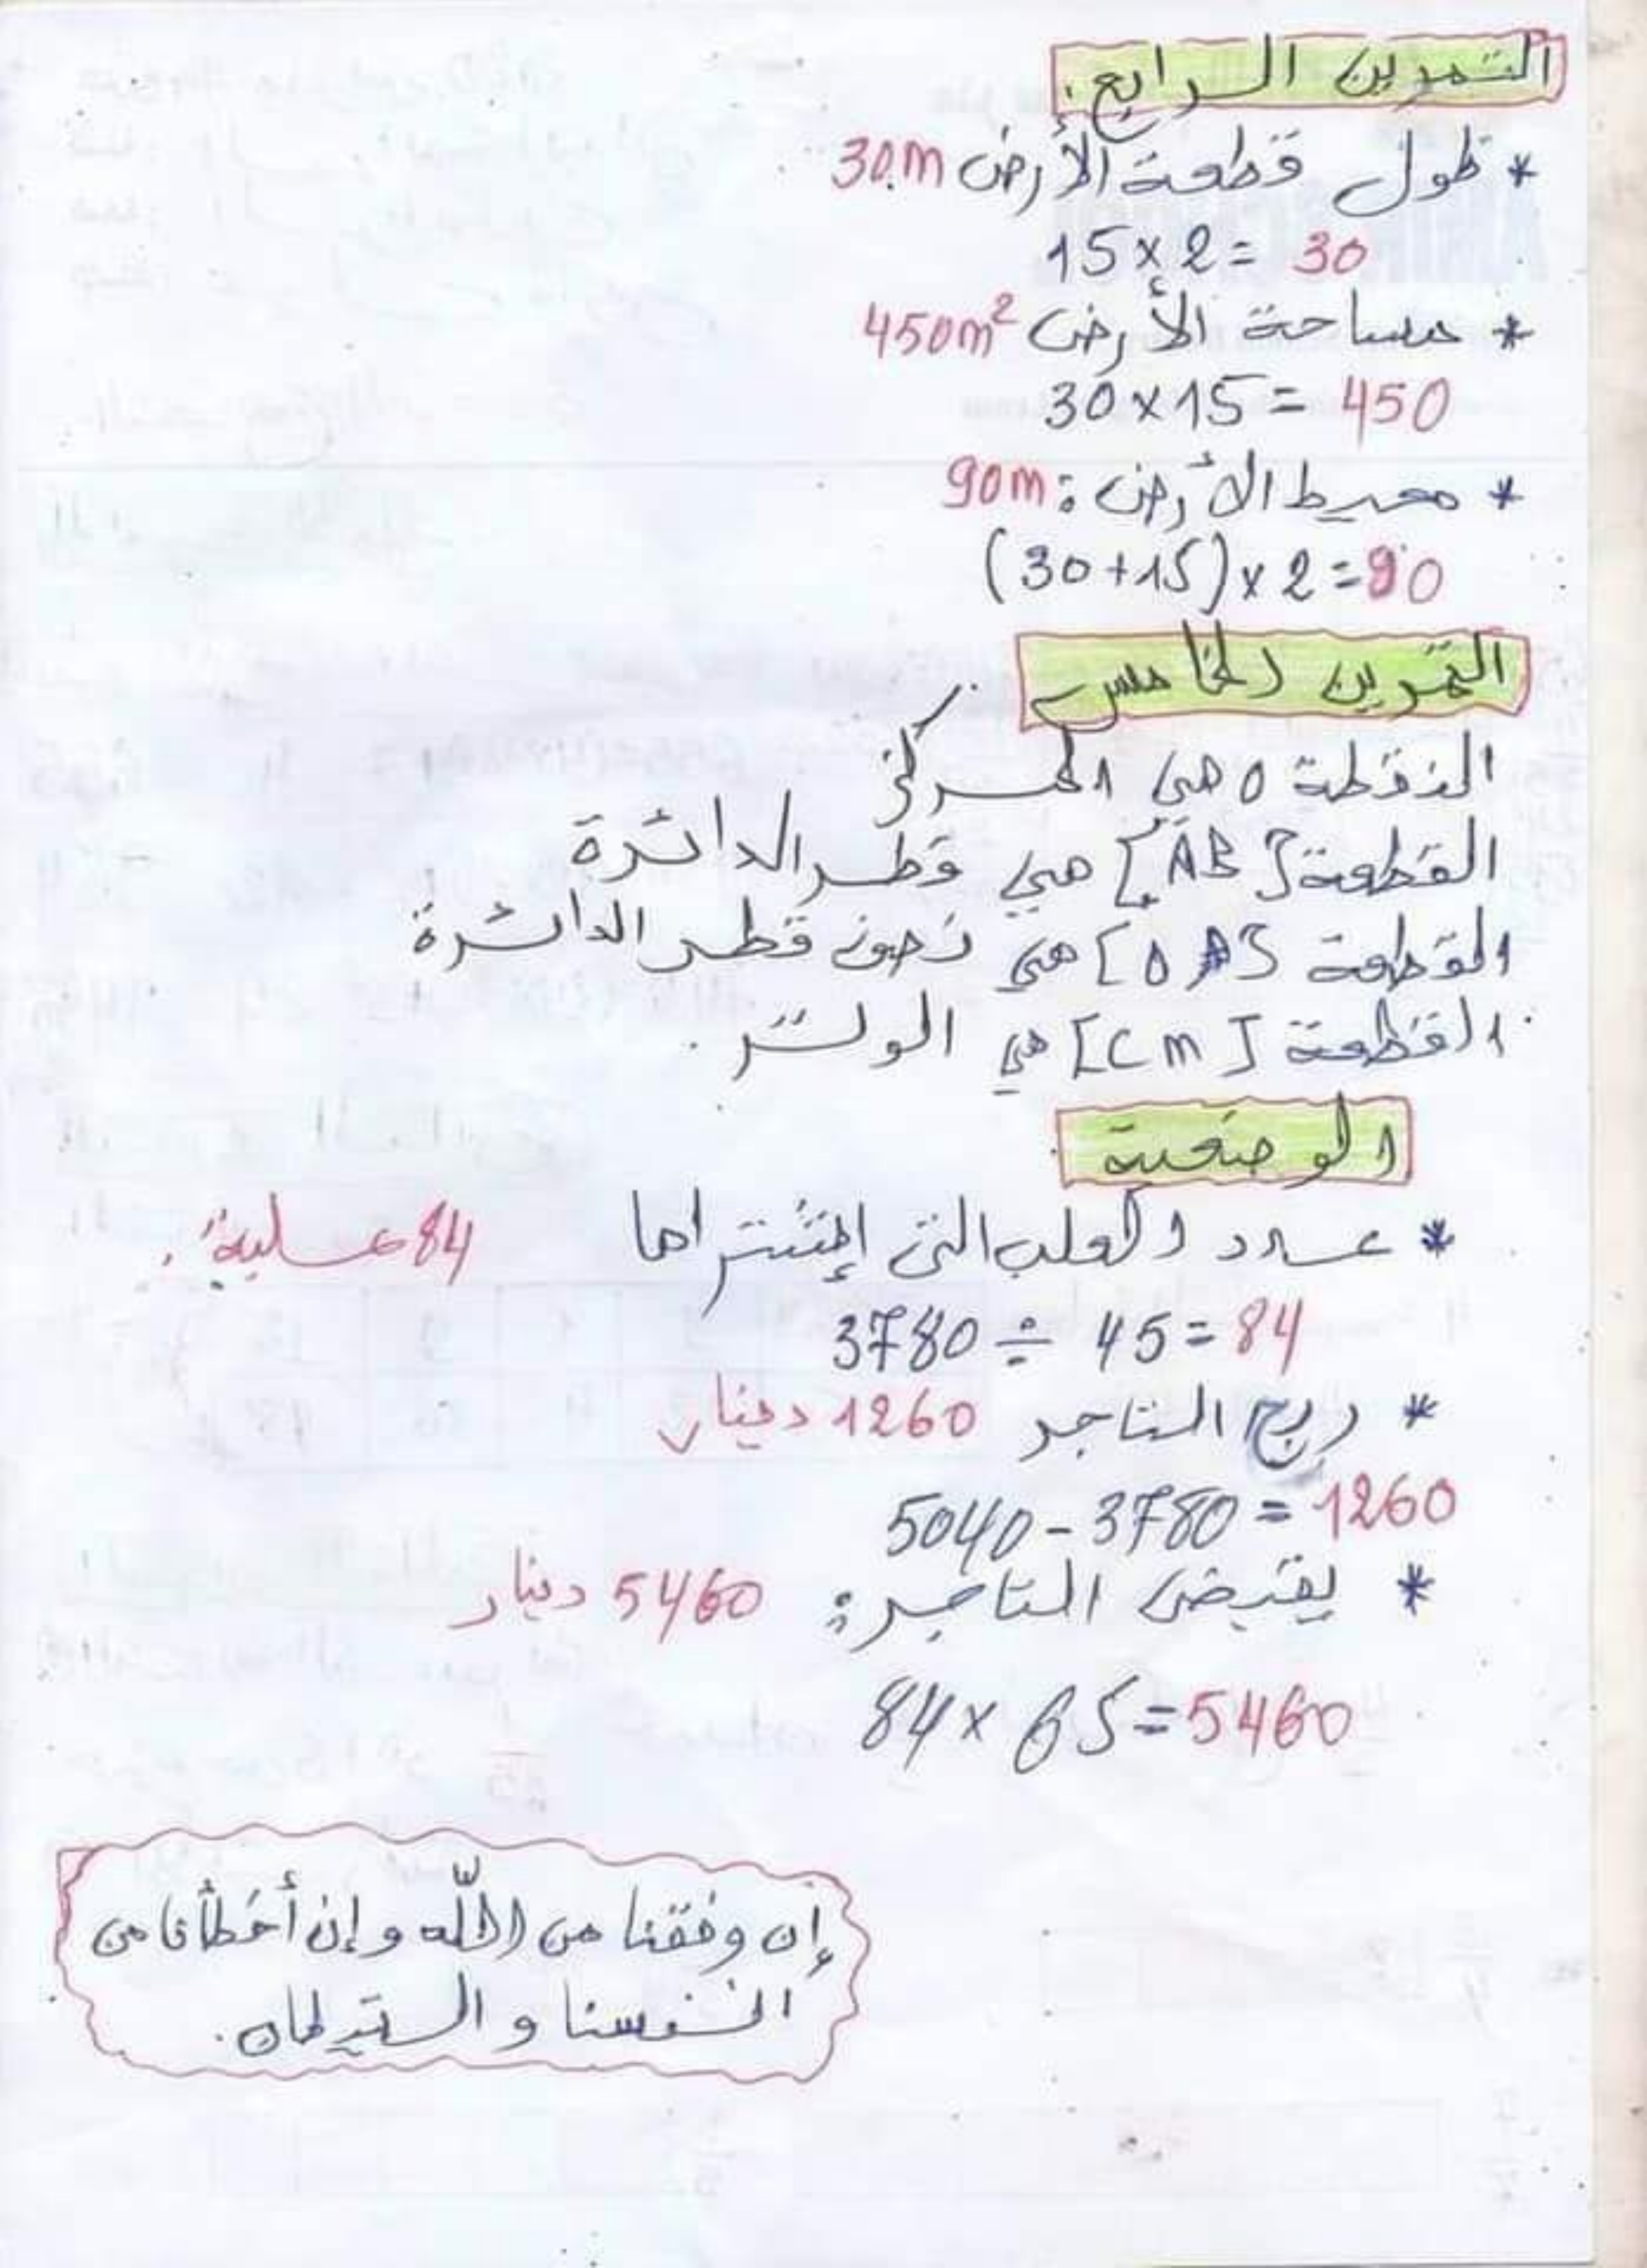 التمرين الرابع.
* طول قطعة الأرض 30m
15 x 2 = 30
* مساحة الأرض 450m²
30 x 15 = 450
* محيط الأرض: 90m
(30+15) x 2 = 90
التمرين الخامس
النقطة O هي المركز
القطعة [AB] هي قطر الدائرة
القطعة [OA] هي نصف قطر الدائرة
القطعة [CM] هي الوتر.
الوضعية
* عدد العلب التي إشتراها 84 علبة.
3780 ÷ 45 = 84
* ربح التاجر 1260 دينار
5040 - 3780 = 1260
* يقبض التاجر: 5460 دينار
84 x 65 = 5460
إن وفقنا من الله وإن أخطأنا من
انفسنا و الشيطان.